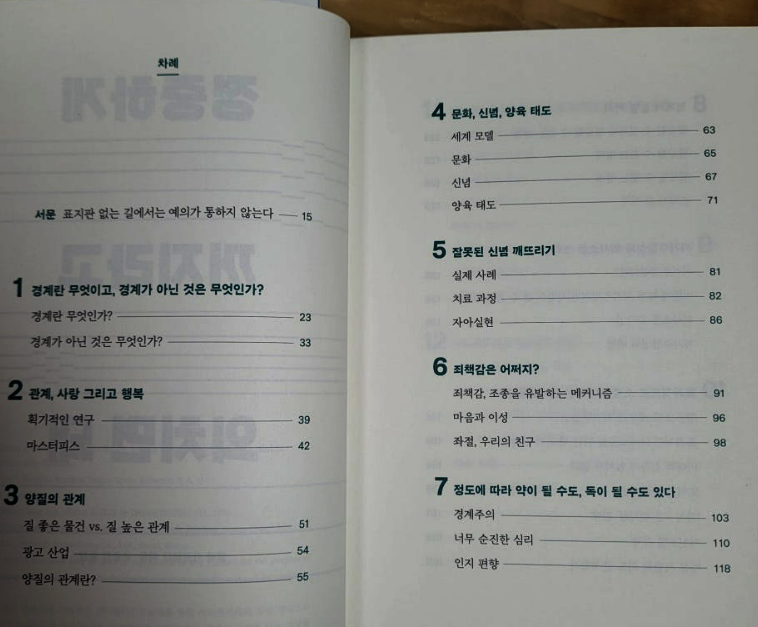 차례
서문 표지판 없는 길에서는 예의가 통하지 않는다 15
1 경계란 무엇이고, 경계가 아닌 것은 무엇인가?
경계란 무엇인가? 23
경계가 아닌 것은 무엇인가? 33
2 관계, 사랑 그리고 행복
획기적인 연구 39
마스터피스 42
3 양질의 관계
질 좋은 물건 vs. 질 높은 관계 51
광고 산업 54
양질의 관계란? 55
4 문화, 신념, 양육 태도
세계 모델 63
문화 65
신념 67
양육 태도 71
5 잘못된 신념 깨뜨리기
실제 사례 81
치료 과정 82
자아실현 86
6 죄책감은 어쩌지?
죄책감, 조종을 유발하는 메커니즘 91
마음과 이성 96
좌절, 우리의 친구 98
7 정도에 따라 약이 될 수도, 독이 될 수도 있다
경계주의 103
너무 순진한 심리 110
인지 편향 118